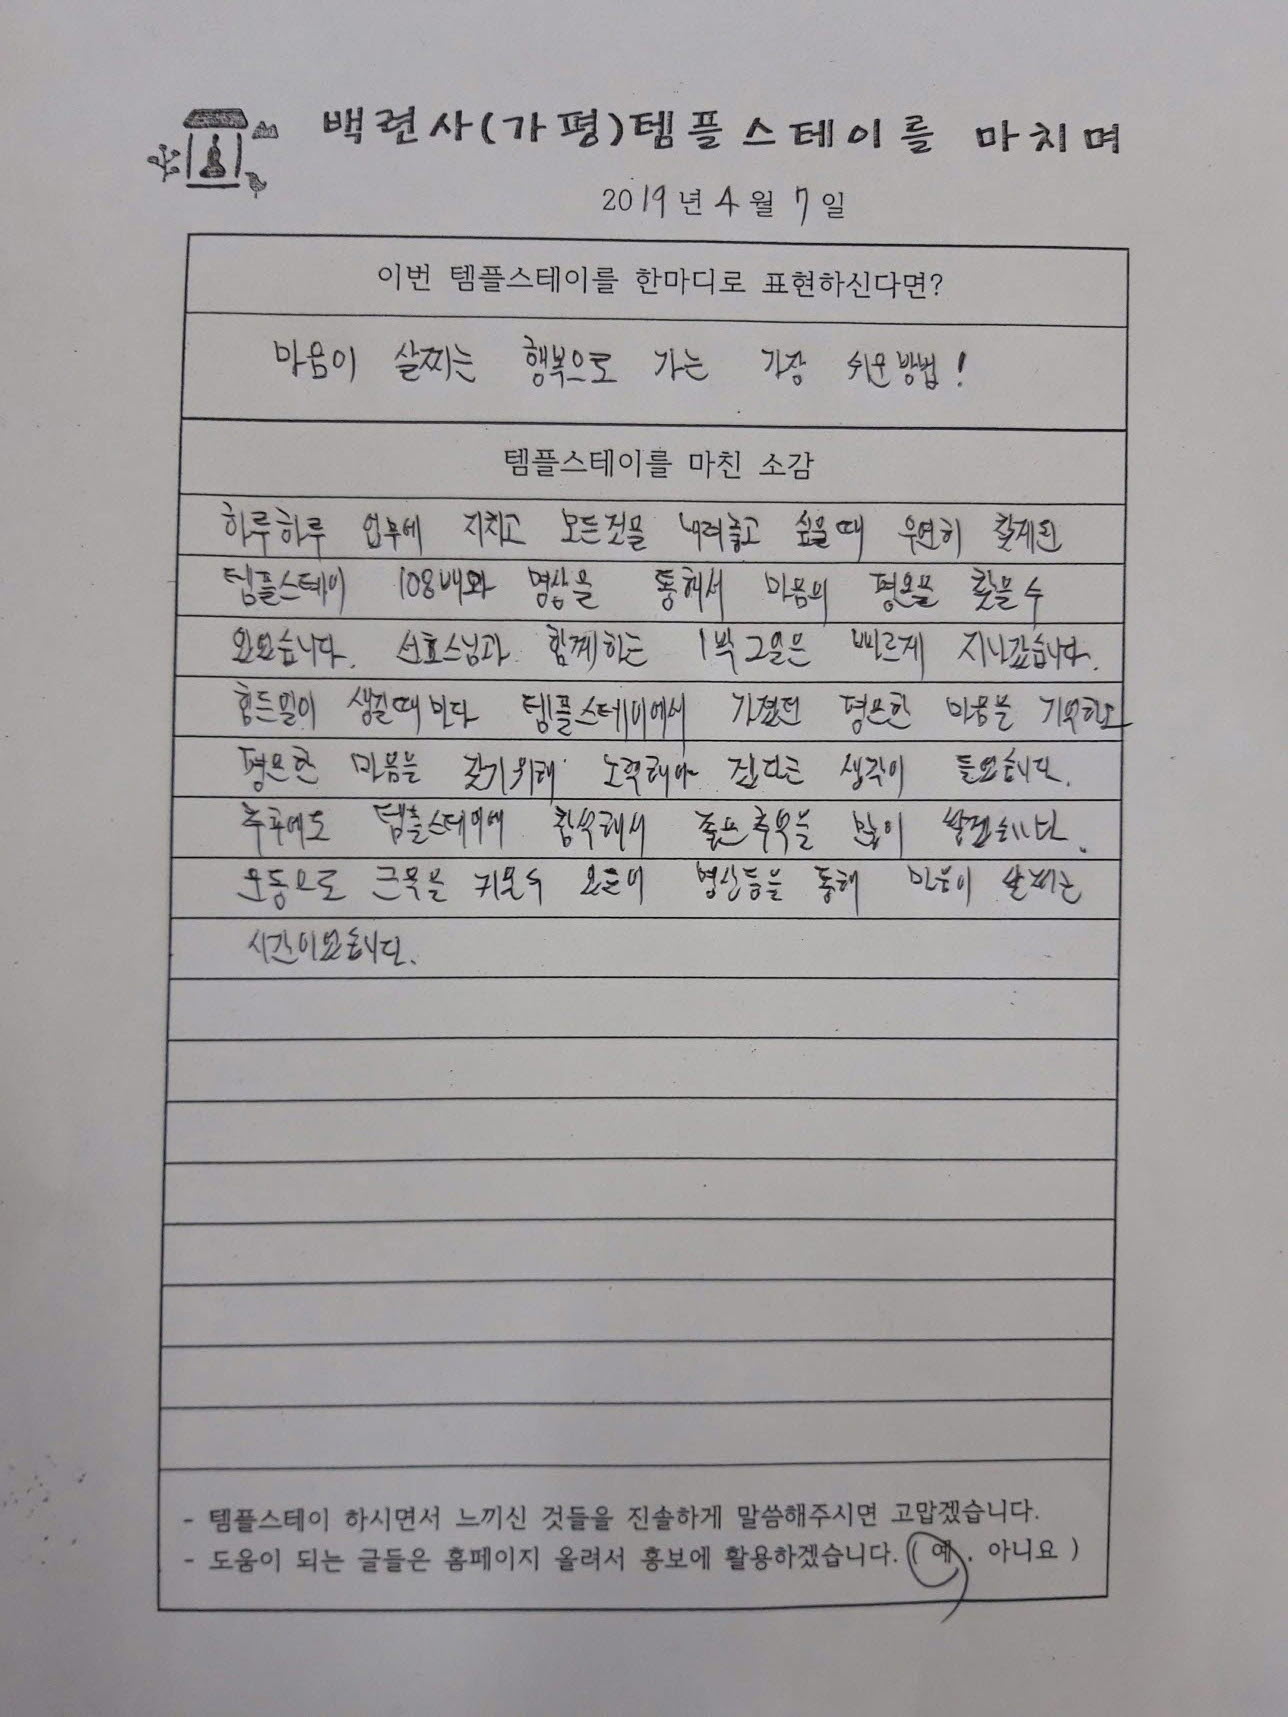 백련사(가평)템플스테이를 마치며
2019년 4월 7일
이번 템플스테이를 한마디로 표현하신다면?
마음이 살찌는 행복으로 가는 가장 쉬운방법!
템플스테이를 마친 소감
하루하루 업무에 지치고 모든것을 내려놓고 싶을때 우연히 찾게된
템플스테이 108배와 명상을 통해서 마음의 평온을 찾을 수
있었습니다. 선효스님과 함께하는 1박2일은 빠르게 지나갔습니다.
힘든일이 생길때 마다 템플스테이에서 가졌던 평온한 마음을 기억하고
평온한 마음을 갖기위해 노력해야 겠다는 생각이 들었습니다.
추후에도 템플스테이에 참석해서 좋은추억을 많이 쌓겠습니다.
운동으로 근육을 키우듯 명상등을 통해 마음이 살찌는
시간이였습니다.
- 템플스테이 하시면서 느끼신 것들을 진솔하게 말씀해주시면 고맙겠습니다.
- 도움이 되는 글들은 홈페이지 올려서 홍보에 활용하겠습니다. ( 예 . 아니요 )